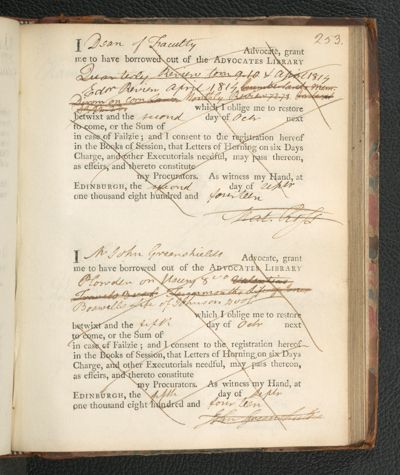 253.
I Dean of Faculty Advocate, grant
me to have borrowed out of the ADVOCATES LIBRARY
Quarterly Review April 1814
Edinr Review April 1814
on
which I oblige me to restore
betwixt and the second day of Octr next
to come, or the Sum of
in case of Failzie; and I consent to the registration hereof
in the Books of Session, that Letters of Horning on six Days
Charge, and other Executorials needful, may pass thereon,
as effeirs, and thereto constitute
my Procurators. As witness my Hand, at
EDINBURGH, the second day of Septr
one thousand eight hundred and fourteen
Mat. Ross
I Mr John Greenshields Advocate, grant
me to have borrowed out of the ADVOCATES LIBRARY
Plowden on Usury 8vo
Boswell's life of Johnson
which I oblige me to restore
betwixt and the fifth day of Octr next
to come, or the Sum of
in case of Failzie; and I consent to the registration hereof
in the Books of Session, that Letters of Horning on six Days
Charge, and other Executorials needful, may pass thereon,
as effeirs, and thereto constitute
my Procurators. As witness my Hand, at
EDINBURGH, the fifth day of Septr
one thousand eight hundred and fourteen
John Greenshields